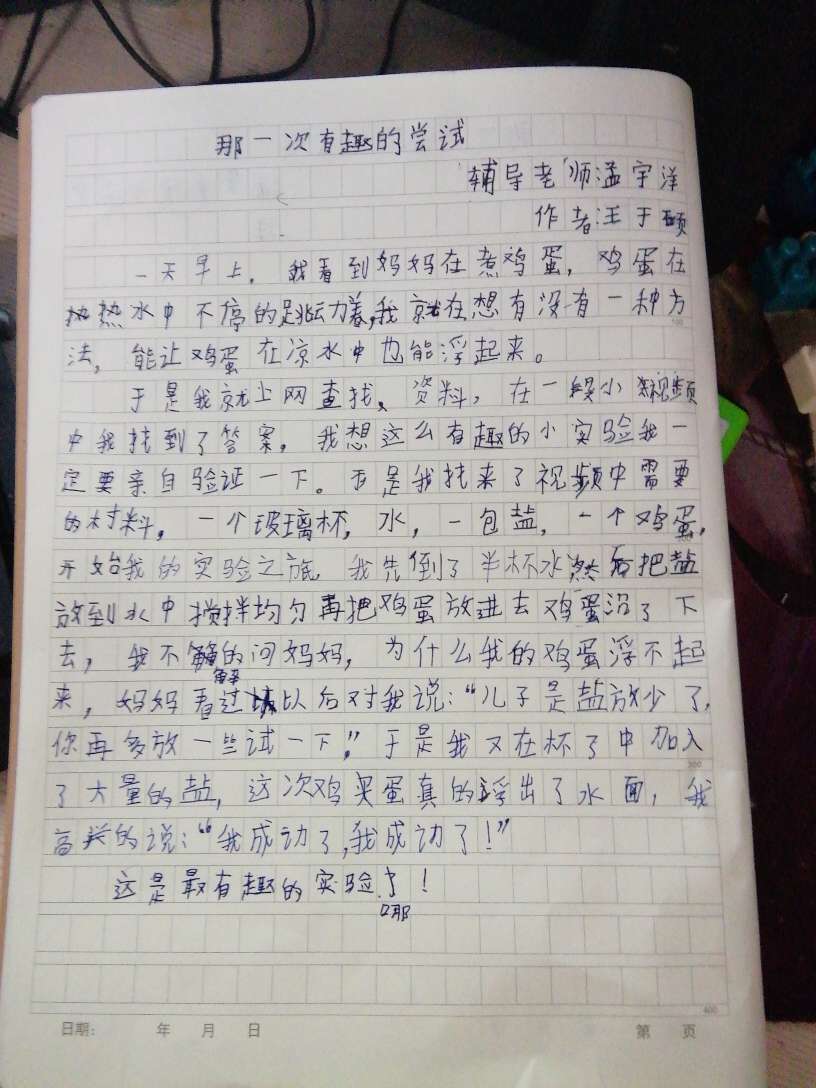 那一次有趣的尝试
辅导老师孟宇洋
作者汪于硕
一天早上，我看到妈妈在煮鸡蛋，鸡蛋在
热热水中不停的跳动着，我就在想有没有一种方
法，能让鸡蛋在凉水中也能浮起来。
于是我就上网查找、资料，在一段小视频
中我找到了答案，我想这么有趣的小实验我一
定要亲自验证一下。于是我找来了视频中需要
的材料，一个玻璃杯，水，一包盐，一个鸡蛋，
开始我的实验之旅，我先倒了半杯水然后把盐
放到水中搅拌均匀再把鸡蛋放进去鸡蛋沉了下
去，我不解的问妈妈，为什么我的鸡蛋浮不起
来，妈妈看过以后对我说：“儿子是盐放少了，
你再多放一些试一下”于是我又在杯了中加入
了大量的盐，这次鸡蛋真的浮出了水面，我
高兴的说：“我成功了，我成功了！”
这是最有趣的实验了！
哪
400
日期： 年 月 日 第 页